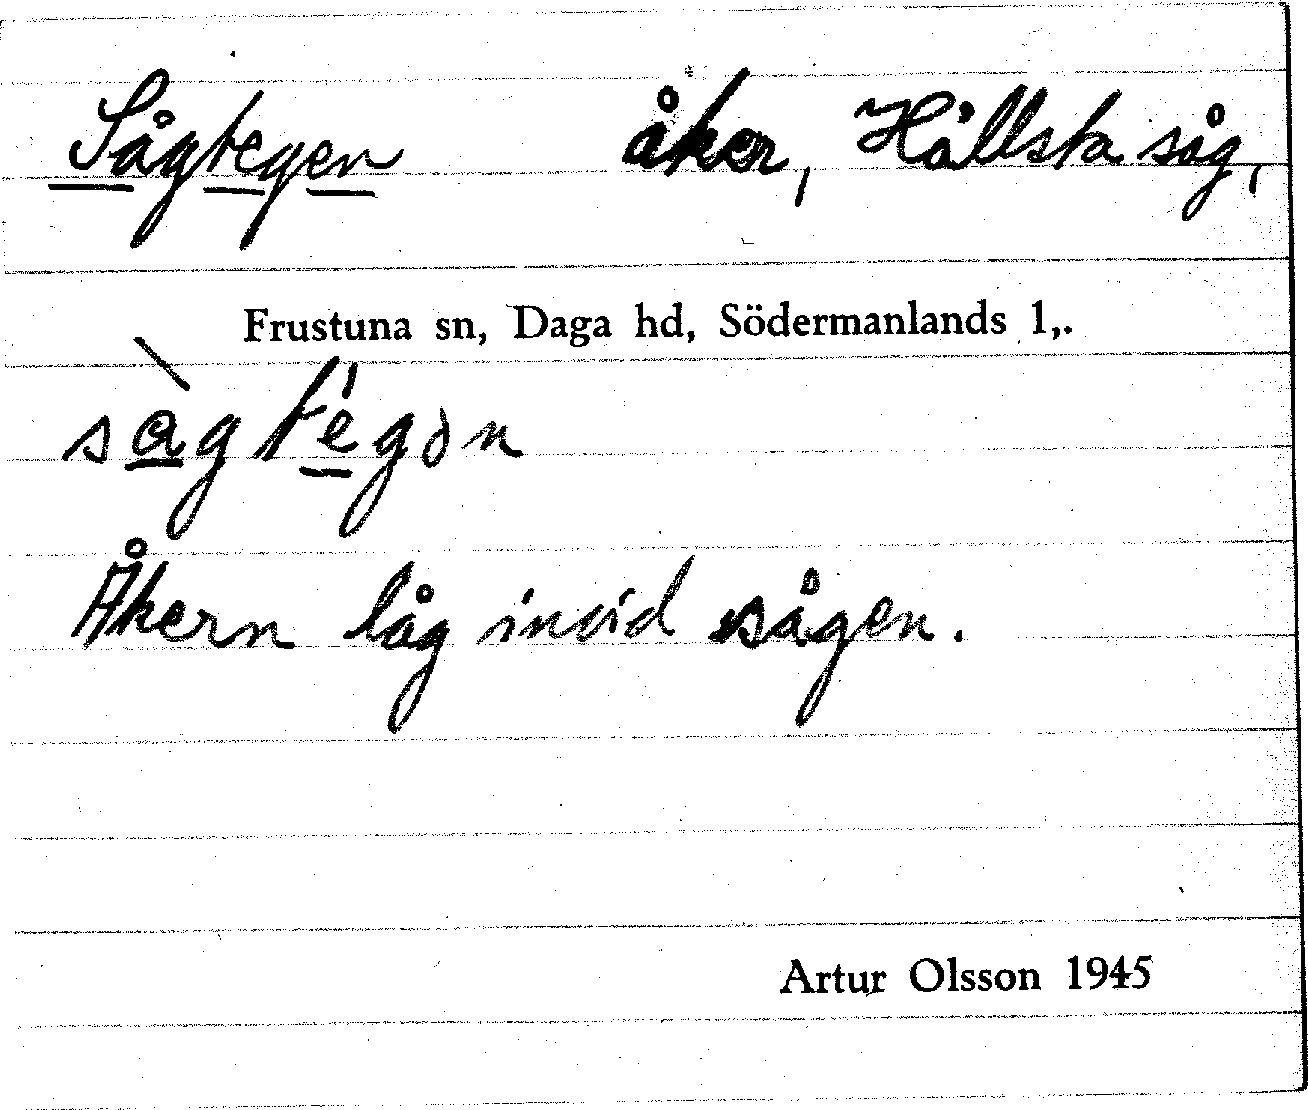 Sågtegen åker, Hållsta såg,
Frustuna sn, Daga hd, Södermanlands l,.
sàgtégən
Åkern låg invid sågen.
Artur Olsson 1945